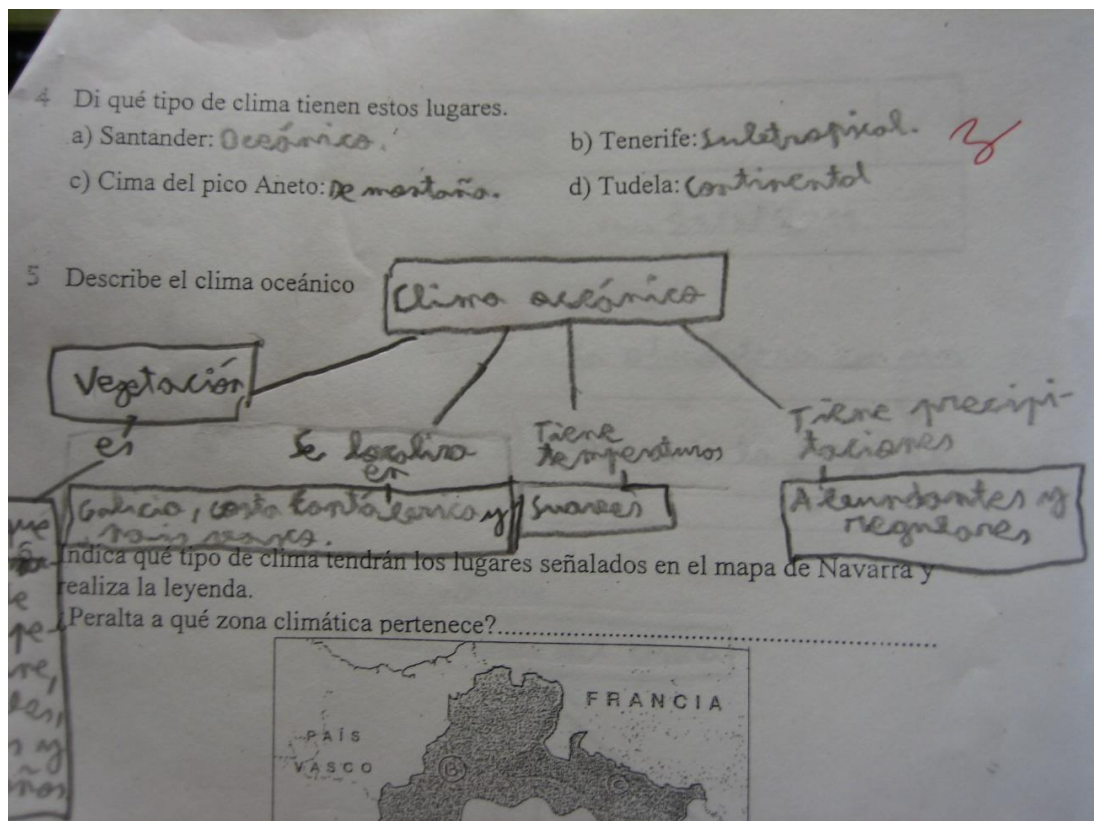 4 Di qué tipo de clima tienen estos lugares.
a) Santander: Oceánico. b) Tenerife: Subtropical.
c) Cima del pico Aneto: De montaña. d) Tudela: Continental
5 Describe el clima oceánico
Clima oceánico
Vegetación
es
Se localiza
en
Tiene
temperaturas
Tiene precipi-
taciones
Galicia, costa Cantábrica y
país vasco.
Suaves
Abundantes y
regulares
Indica qué tipo de clima tendrán los lugares señalados en el mapa de Navarra y
realiza la leyenda.
¿Peralta a qué zona climática pertenece?
FRANCIA
PAÍS
VASCO
B
C